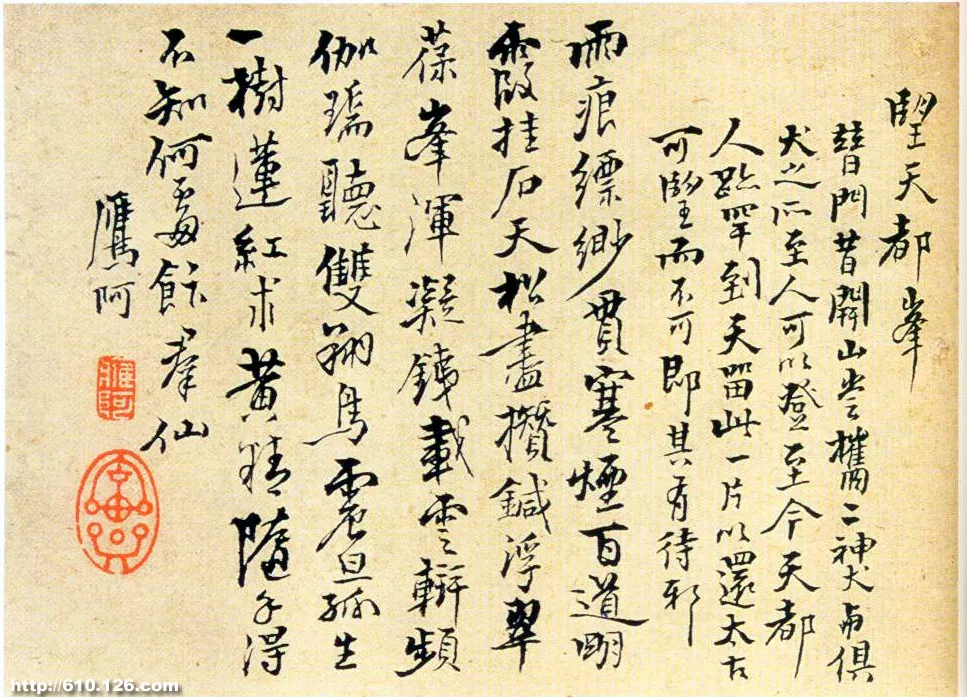 望天都峯
普門昔開山嘗攜二神犬與俱
犬之所至人可以登至今天都
人跡罕到天留此一片以還太古
可望而不可即其有待邪
雨痕縹緲貫寒煙百道明
霞挂石天松盡攢鍼浮翠
葆峯渾凝鐵載雲軿頻
伽瑞聽雙翔鳥震旦孤生
一樹蓮紅朮黃精隨手得
不知何處飯羣仙
鷹阿
http://610.126.com